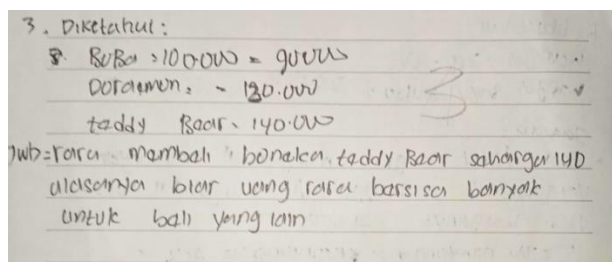 3. Diketahui:
BoBo > 100.000 = 90000
Doraemon = - 130.000
taddy Baar = 140.000
Jwb = rara mambali bonaka taddy Baar saharga 140
alasanya biar uang rara barsisa banyak
untuk bali yang lain
3